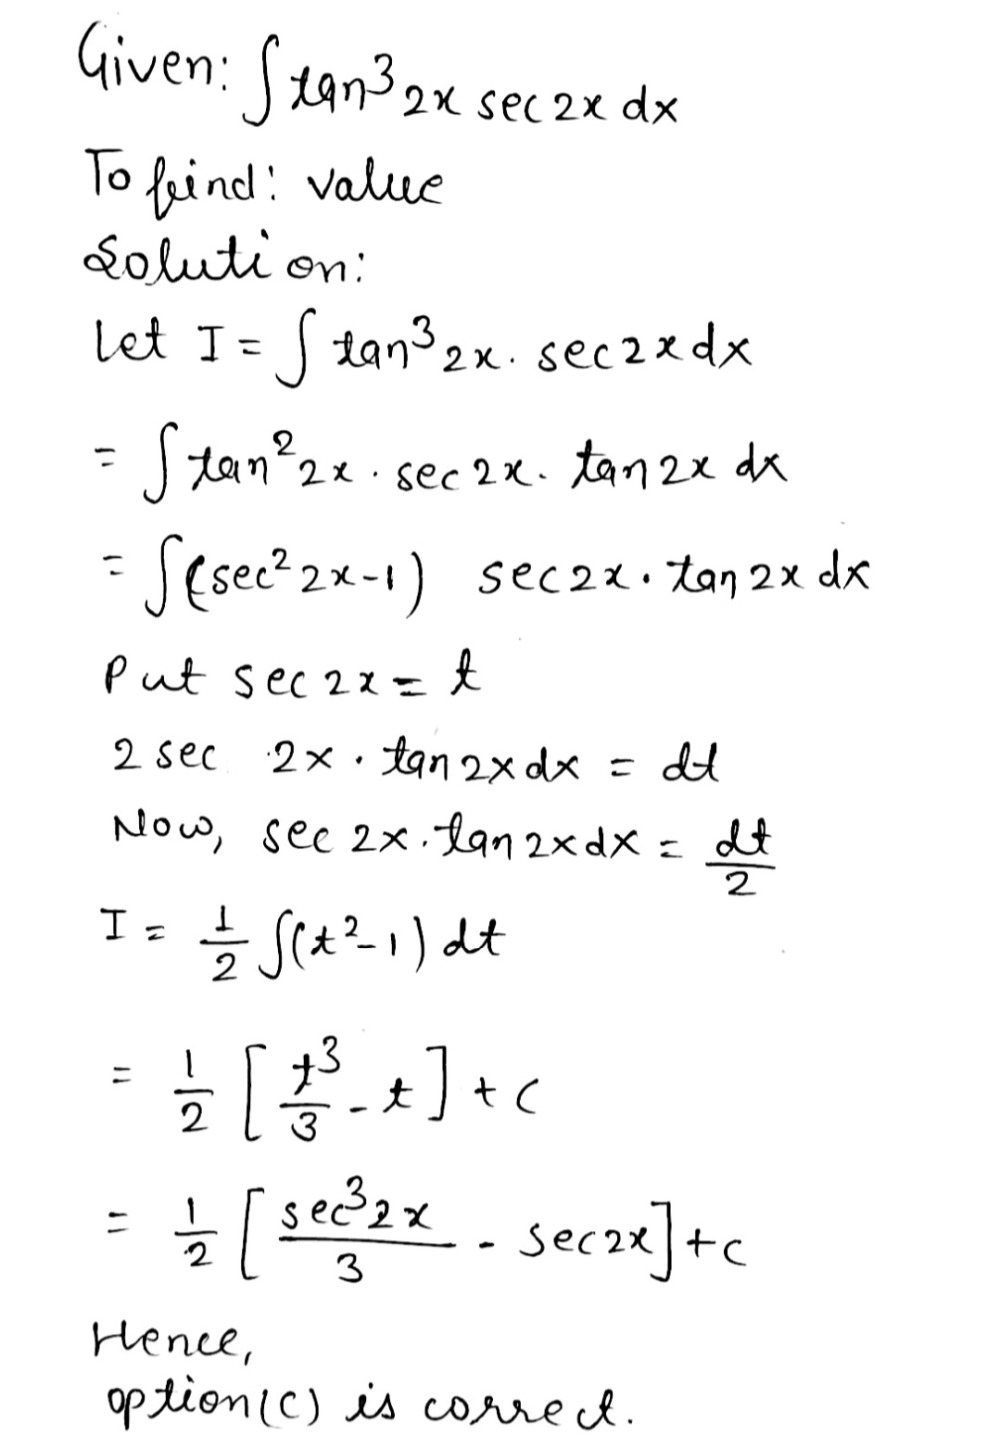 Given: ∫ tan³ 2x sec 2x dx
To find: value
Solution:
Let I = ∫ tan³ 2x . sec 2x dx
= ∫ tan² 2x . sec 2x . tan 2x dx
= ∫ (sec² 2x - 1) sec 2x . tan 2x dx
Put sec 2x = t
2 sec 2x . tan 2x dx = dt
Now, sec 2x . tan 2x dx = dt/2
I = 1/2 ∫ (t² - 1) dt
= 1/2 [ t³/3 - t ] + c
= 1/2 [ sec³ 2x/3 - sec 2x ] + c
Hence,
option (c) is correct.